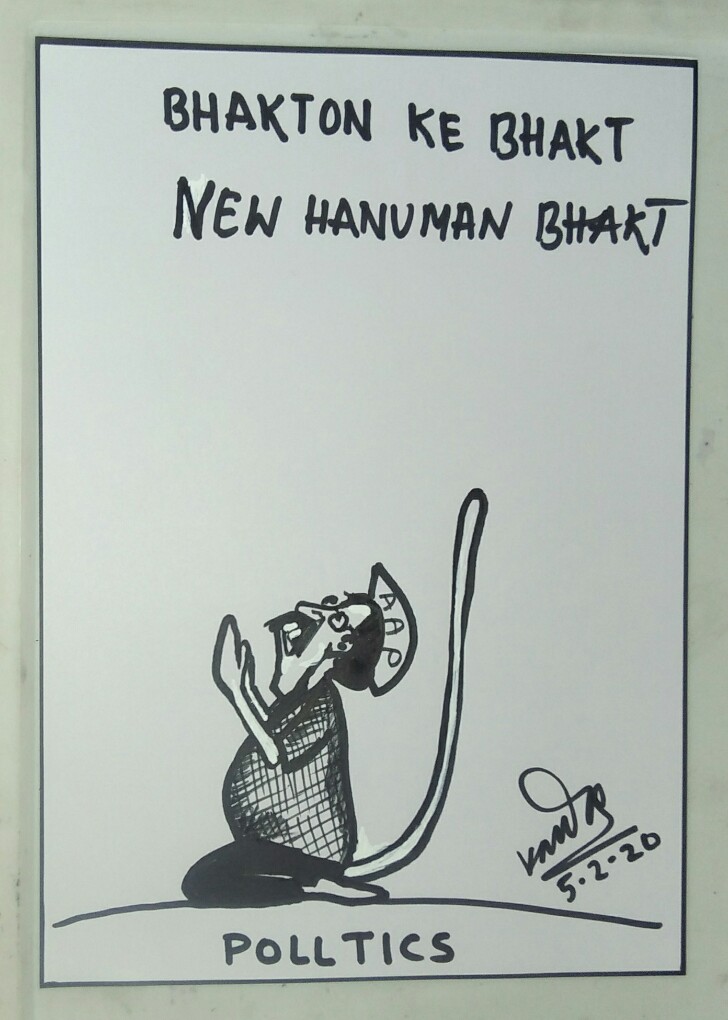 BHAKTON KE BHAKT
NEW HANUMAN BHAKT
AAP
5.2.20
POLLTICS